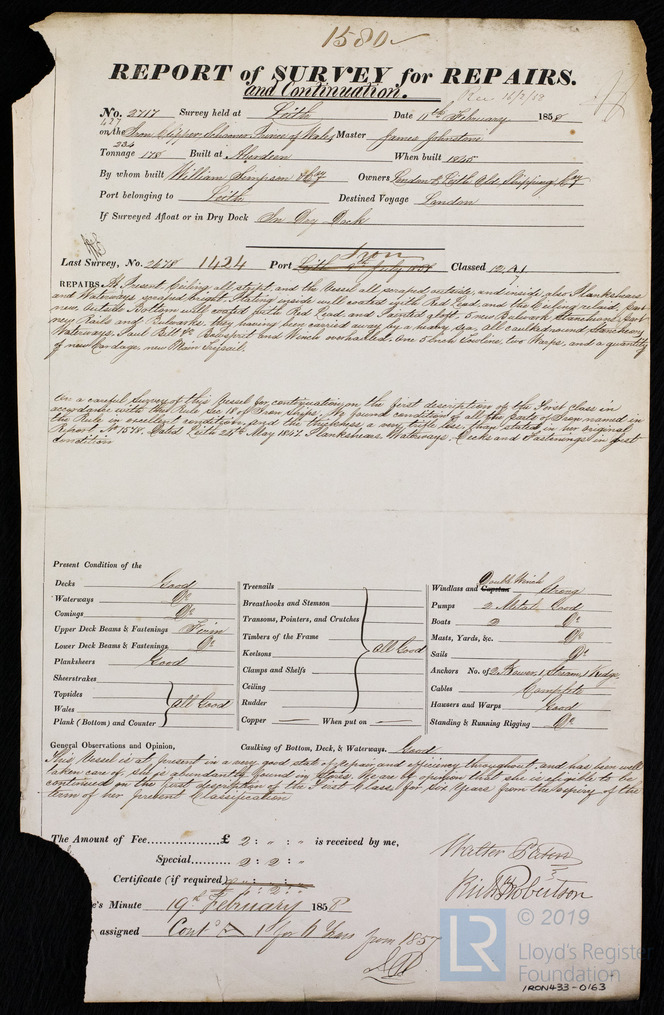 1580
REPORT of SURVEY for REPAIRS.
and Continuation.
Rec 16/2/58
No. 2717 Survey held at Leith Date 11th February 1858
427
on the Iron Clipper Schooner Prince of Wales Master James Johnstone
234
Tonnage 178 Built at Aberdeen When built 1845
By whom built William Simpson & Coy Owners London & Leith Old Shipping Coy
Port belonging to Leith Destined Voyage London
If Surveyed Afloat or in Dry Dock In Dry Dock
Iron
Last Survey, No. 2678 1424 Port Leith July Classed 12 A1
REPAIRS. At Present, Ceiling all stript, and the Vessel all scraped outside, and inside, also Plankshears
and Waterways scraped bright. Plating inside well coated with Red Lead, and the Ceiling relaid, part
new, Outside Bottom well coated with Red Lead and Painted aloft. 5 new Bulwark Stanchions, part
new Rails and Bulwarks, they having been carried away by a heavy sea. All caulked round Stanchions,
Waterways, Paul Bitts, Bowsprit and Winch overhauled. One 5 Inch Towline, two Warps, and a quantity
of new Cordage, new Main Trysail.
On a careful Survey of this Vessel for continuation on the first description of the First Class in
accordance with the Rule Sec 18 of Iron Ships, We found condition of all the parts of Iron named in
the Rule in excellent condition, and the thickness a very trifle less than stated in her original
Report No 1578. Dated Leith 24th May 1847. Plankshears, Waterways, Decks and Fastenings in good
condition
Present Condition of the
Decks Good
Waterways Do
Comings Do
Upper Deck Beams & Fastenings Firm
Lower Deck Beams & Fastenings Do
Planksheers Good
Sheerstrakes
Topsides
Wales
Plank (Bottom) and Counter
All Good
Treenails
Breasthooks and Stemson
Transoms, Pointers, and Crutches
Timbers of the Frame
Keelsons
Clamps and Shelfs
Ceiling
Rudder
All Good
Copper — When put on —
Double Winch
Windlass and Capstan Strong
Pumps 2 Metal Good
Boats 2 Do
Masts, Yards, &c. Do
Sails Do
Anchors No. of 2 Bower, 1 Stream, 1 Kedge
Cables Complete
Hausers and Warps Good
Standing & Running Rigging Do
General Observations and Opinion, Caulking of Bottom, Deck, & Waterways. Good
This Vessel is at present in a very good state of Repair, and efficiency throughout, and has been well
taken care of. She is abundantly found in Stores. We are of opinion that she is eligible to be
continued in the first description of the First Class for Six Years from the expiry of the
term of her present Classification
The Amount of Fee............... £ 2 : " : " is received by me,
Special.......... 2 : 2 : "
Certificate (if required)
Walter Paton
Richd Robertson
's Minute 19th February 1858
assigned Contd A 1 for 6 Years from 1857
LR © 2019
Lloyd's Register
Foundation
IRON433-0163